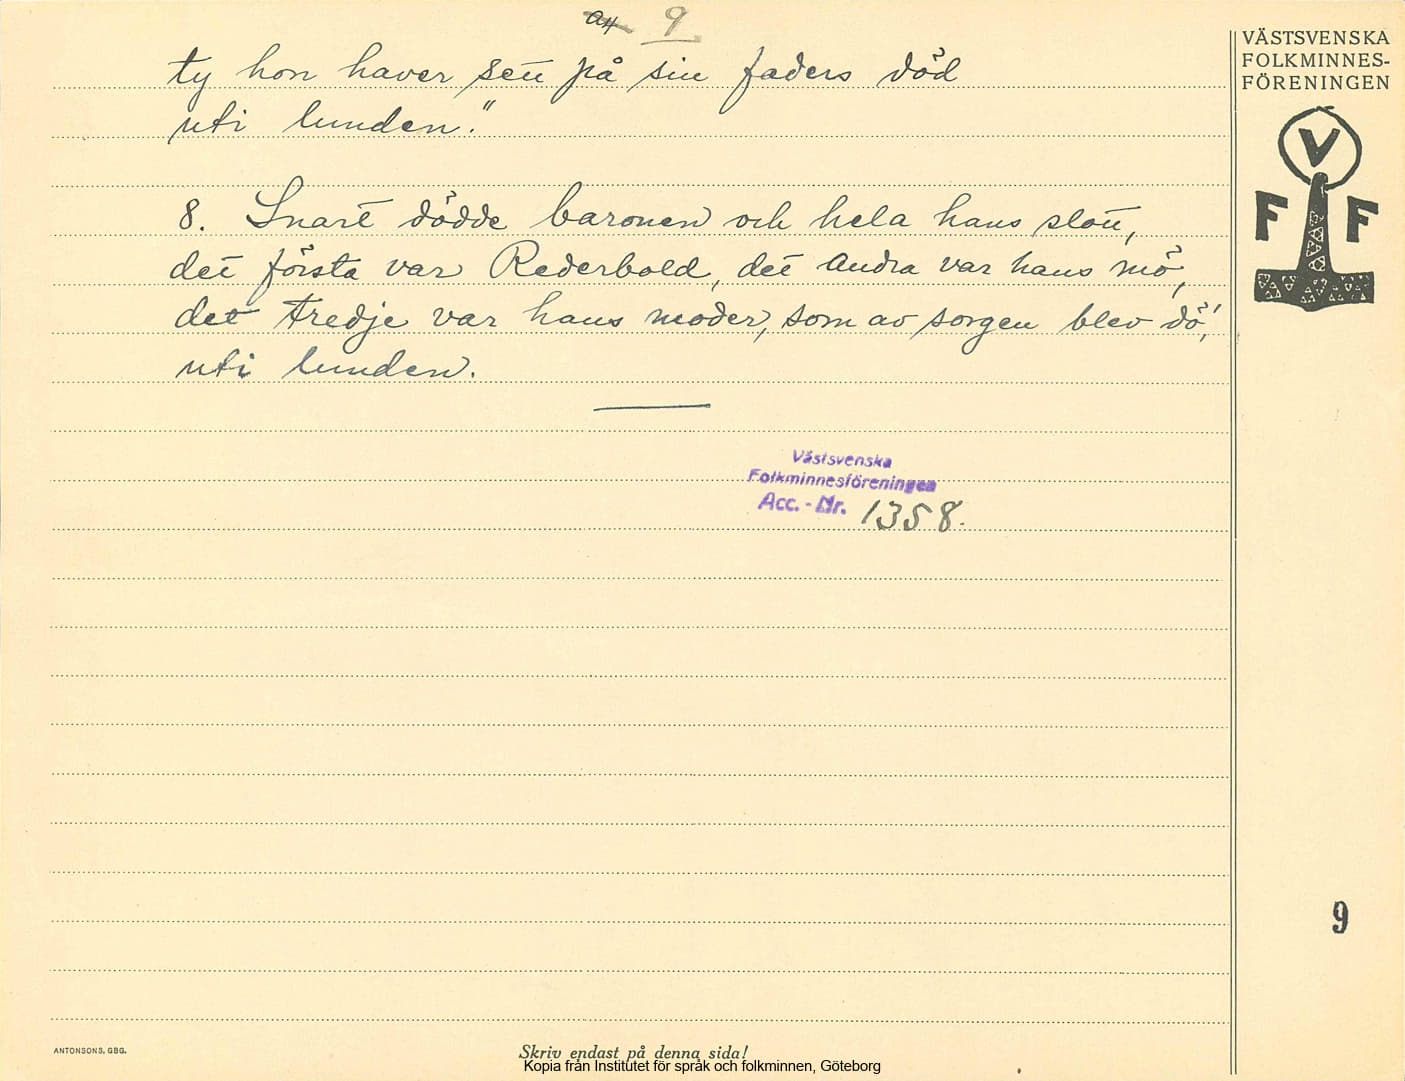 9
ty hon haver sett på sin faders död
uti lunden."
8. Snart dödde baronen och hela hans slott,
det första var Rederbold, det andra var hans mö,
det tredje var hans moder, som av sorgen blev dö,
uti lunden.
Västsvenska
Folkminnesföreningen
Acc.-Nr. 1358.
VÄSTSVENSKA
FOLKMINNES-
FÖRENINGEN
V
F F
9
ANTONSONS, GBG.
Skriv endast på denna sida!
Kopia från Institutet för språk och folkminnen, Göteborg